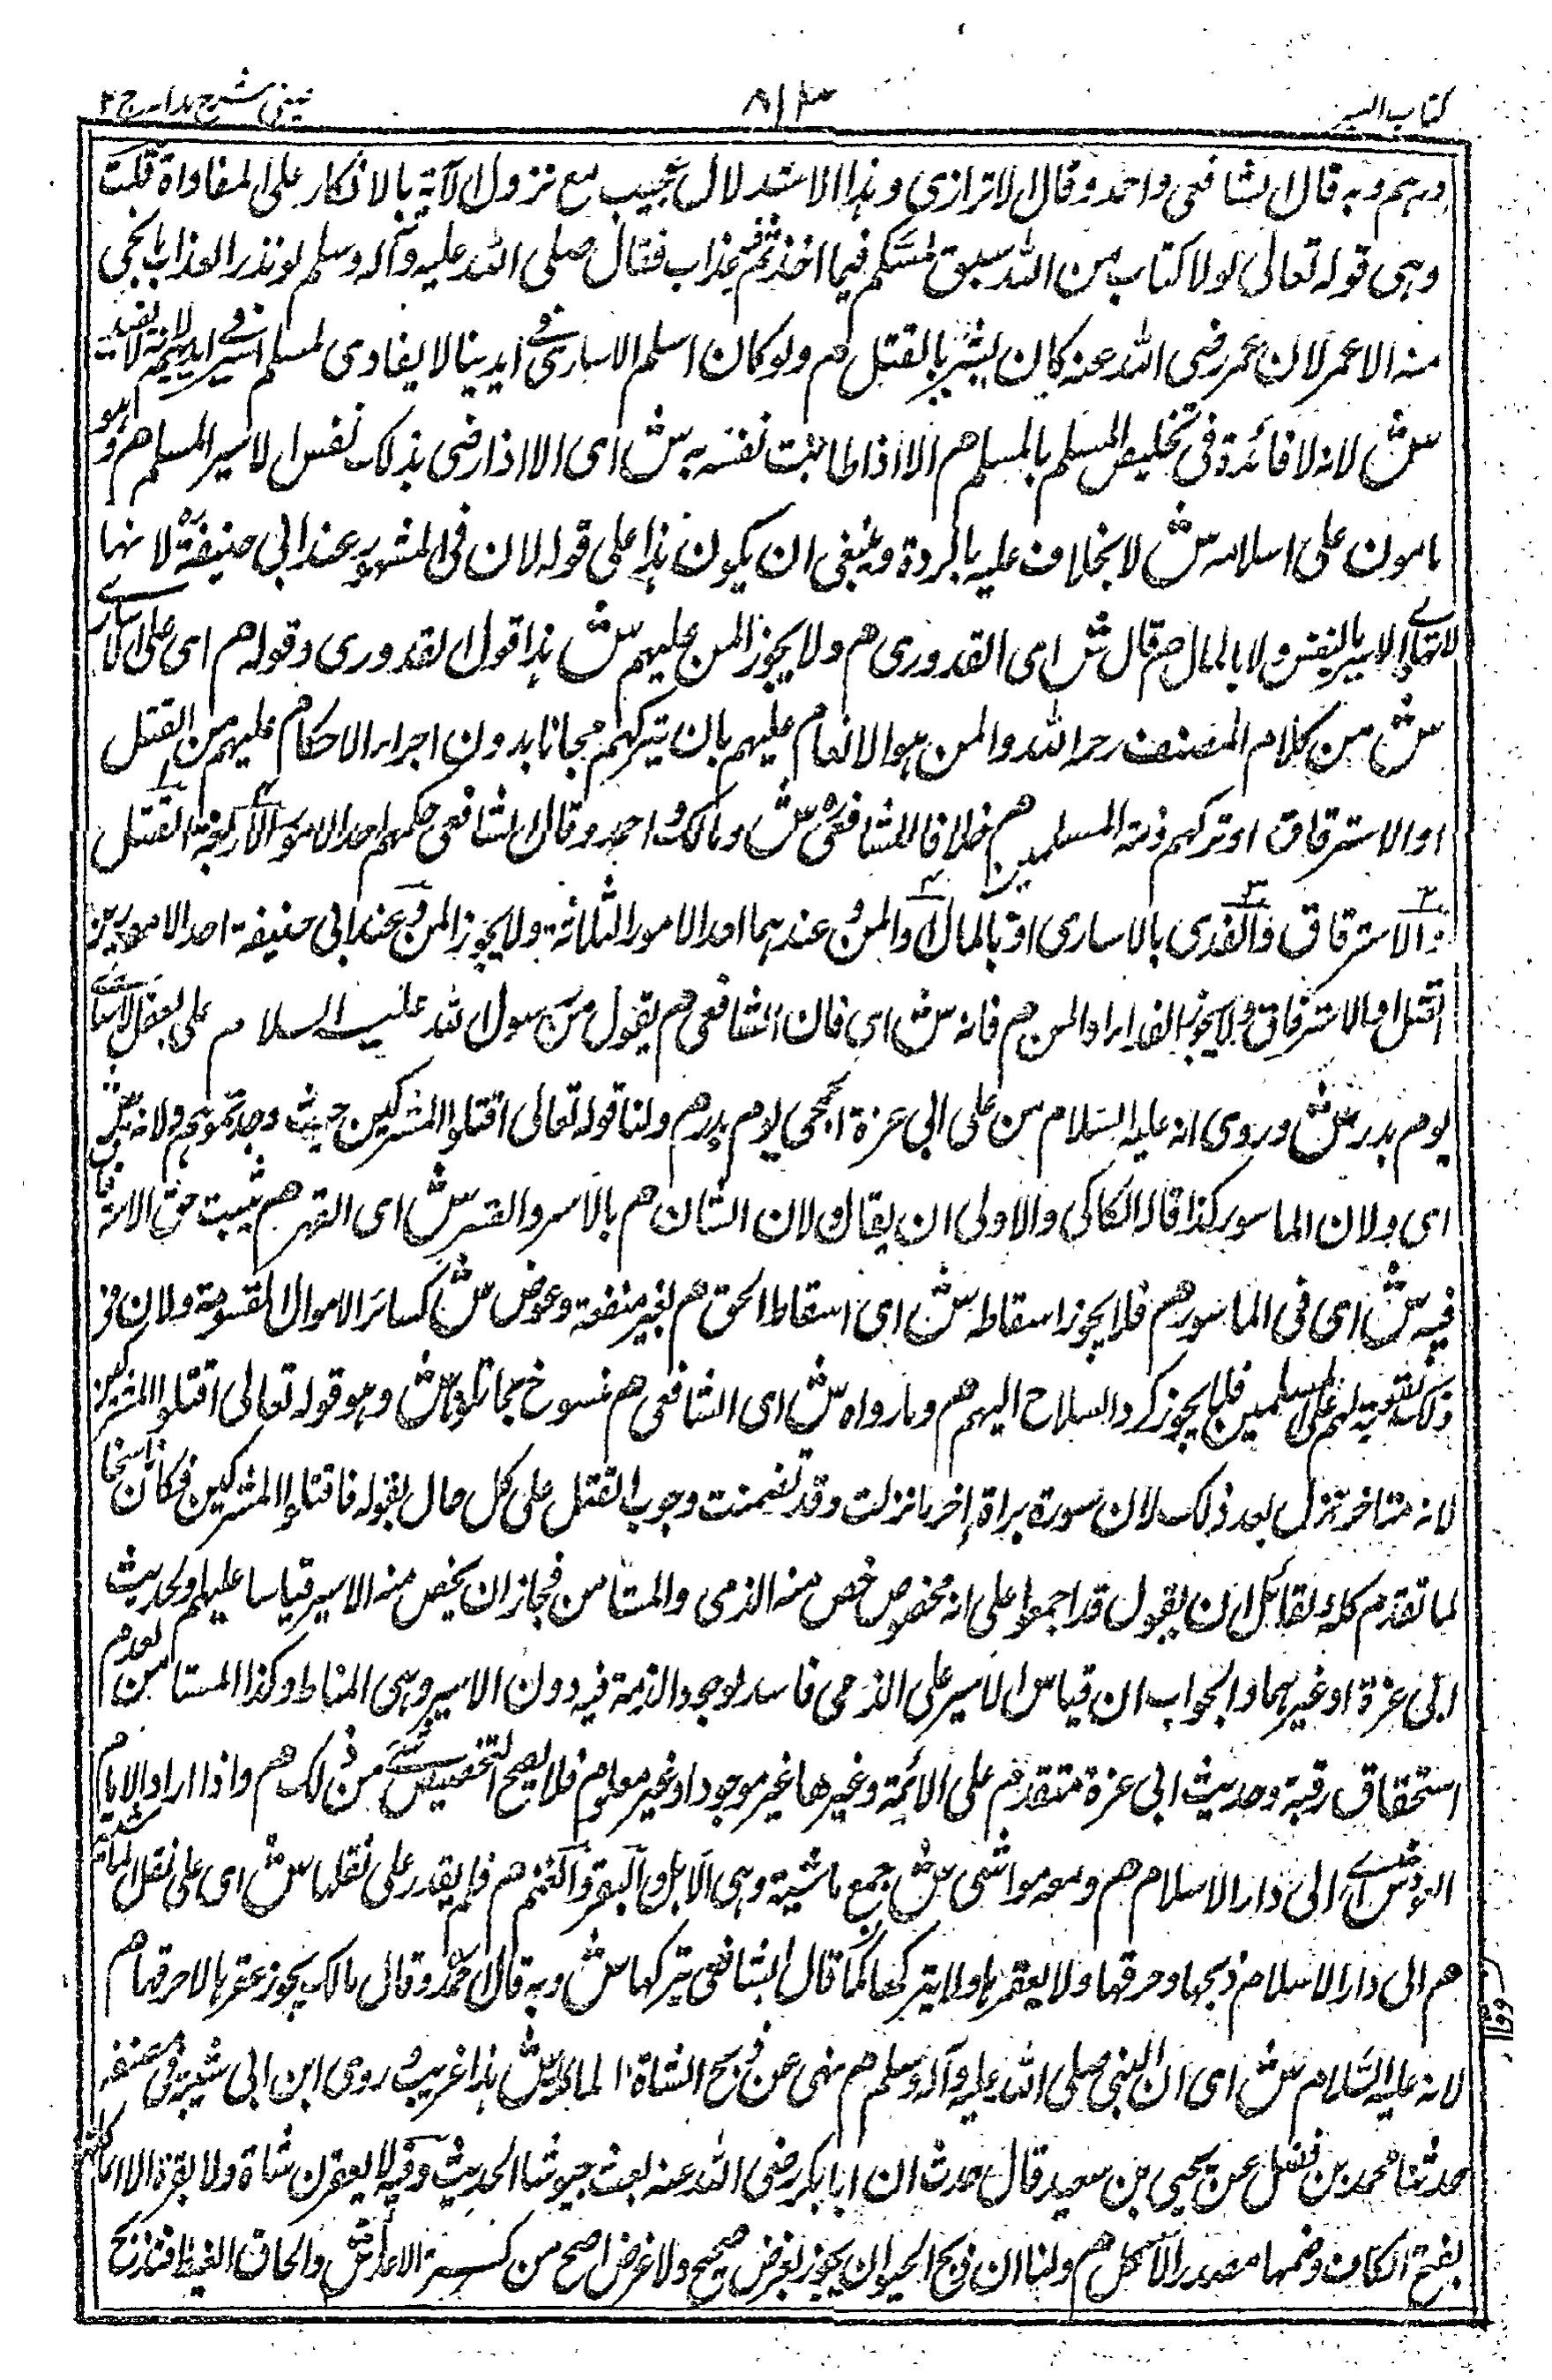 كتاب السير ٨١٣ عينى شرح هدايه ج ٢
درهم وبه قال الشافعى واحمد وقال الاترازى وهذا الاستدلال عجيب مع نزول الآية بالانكار على المفاداة قلت
وهى قوله تعالى لولا كتاب من الله سبق لمسكم فيما اخذتم عذاب فقال صلى الله عليه وآله وسلم لو نذر العذاب ما نجى
منه الا عمر لان عمر رضى الله عنه كان يشير بالقتل م ولو كان اسلم الاسارى فى ايدينا لا يفادى لمسلم اسير فى ايديهم لانه لا يفيد
ش لانه لا فائدة فى تخليص المسلم بالمسلم م الا اذا طابت نفسه به ش اى الا اذا رضى بذلك نفس الاسير المسلم م وهو
مامون على اسلامه ش لا يخاف عليه بالردة وينبغى ان يكون هذا على قوله لان فى المشهور عند ابى حنيفة لا نها
لا تفادى الاسير بالنفس ولا بالمال م قال ش اى القدورى م ولا يجوز المن عليهم ش هذا قول القدورى وقوله م اى على الاسارى
ش من كلام المصنف رحمه الله والمن هو الانعام عليهم بان يتركهم مجانا بدون اجراء الاحكام عليهم من القتل
او الاسترقاق او تركهم ذمة المسلمين م خلافا للشافعى ش ومالك واحمد وقال الشافعى حكمهم احد الامور الاربعة القتل
والاسترقاق والفدى بالاسارى او بالمال والمن وعندهما احد الامور الثلاثة ولا يجوز المن وعند ابى حنيفة احد الامرين
القتل او الاسترقاق ولا يجوز الفداء والمن م فانه ش اى فان الشافعى م يقول من رسول الله عليه السلام على بعض الاسارى
يوم بدر ش وروى انه عليه السلام من على ابى عزة الجمحى يوم بدر م ولنا قوله تعالى اقتلوا المشركين حيث وجدتموهم ولانه ش
اى ولان الماسور كذا قاله الكاكى والاولى ان يقال ولان الشان م بالاسر والقسر ش اى القهر م يثبت حق الاسترقاق
فيه ش اى فى الماسور م فلا يجوز اسقاطه ش اى اسقاط الحق م لغير منفعة وعوض ش كسائر الاموال المقسومة ولان فى
ذلك تقوية لهم على المسلمين فلا يجوز كرد السلاح اليهم م وما رواه ش اى الشافعى م منسوخ بما تلونا ش وهو قوله تعالى اقتلوا المشركين
لانه متاخر نزل بعد ذلك لان سورة براة اخر ما نزلت وقد تضمنت وجوب القتل على كل حال بقوله فاقتلوا المشركين فكان ناسخا
لما تقدم كله لقائل ان يقول قد اجمعوا على انه مخصوص خص منه الذمى والمستامن فجاز ان يخص منه الاسير قياسا عليهما ولحديث
ابى عزة او غيرهما والجواب ان قياس الاسير على الذمى فاسد لوجود الذمة فيه دون الاسير وهى المناط وكذا المستامن لعدم
استحقاق رقبة وحديث ابى عزة متقدم على الائمة وغيرها غير موجود او غير معلوم فلا يصح التخصيص من ذلك م واذا اراد الامام
العود ش اى الى دار الاسلام م ومعه مواشى ش جمع ماشية وهى الابل والبقر والغنم م فلم يقدر على نقلها ش اى على نقل الماشية
م الى دار الاسلام م ذبحها وحرقها ولا يعقرها ولا يتركها كما قال الشافعى يتركها ش وبه قال احمد وقال مالك يجوز عقرها لا حرقها م
لانه عليه السلام ش اى ان النبى صلى الله عليه وآله وسلم م نهى عن ذبح الشاة الا لماكلة ش هذا غريب وروى ابن ابى شيبة فى مصنفه
حدثنا محمد بن فضل عن يحيى بن سعيد قال حدثت ان ابا بكر رضى الله عنه بعث جيوشا الحديث وفيه لا يعقرن شاة ولا بقرة الا لماكلة
بفتح الكاف وضمها مصدر الاكل م ولنا ان ذبح الحيوان يجوز لغرض صحيح ولا غرض اصح من كسر شوكة الاعداء ش والحاق الغيظ فتذبح